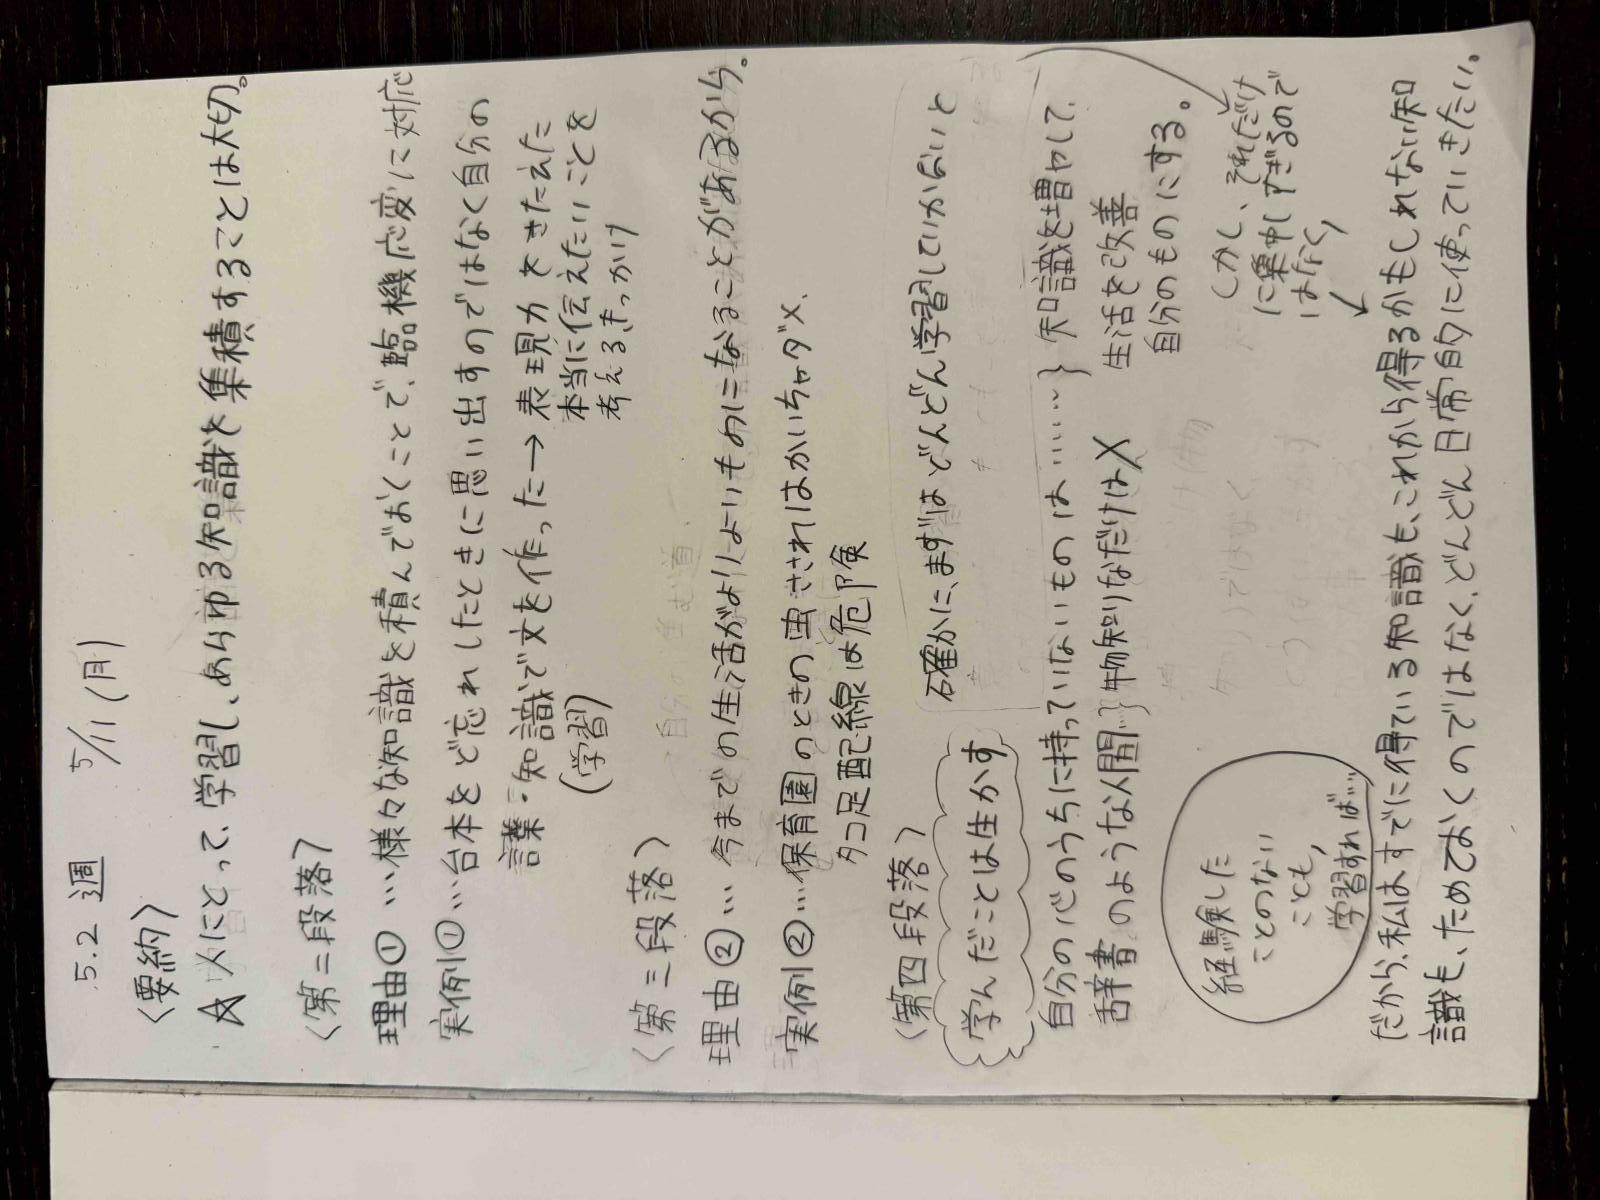 5.2週 5/11(月)
〈要約〉
☆人にとって、学習し、あらゆる知識を集積することは大切。
〈第二段落〉
理由①…様々な知識を積んでおくことで、臨機応変に対応
実例①…台本をど忘れしたときに思い出すのではなく自分の
言葉・知識で文を作った→表現力をきたえた
(学習)
本当に伝えたいことを
考えるきっかけ
〈第三段落〉
理由②…今までの生活がよりよいものになることがあるから。
実例②…保育園のときの虫さされはかいちゃダメ、
タコ足配線は危険
〈第四段落〉
学んだことは生かす
確かに、まずはどんどん学習していかないと
自分の心のうちに持っていないものは……}知識を増やして、
辞書のような人間}物知りなだけは✕
生活を改善
自分のものにする。
しかし、それだけ
に集中しすぎるので
はなく、
経験した
ことのない
ことも、
学習すれば…
だから、私はすでに得ている知識も、これから得るかもしれない知
識も、ためておくのではなく、どんどん日常的に使っていきたい。